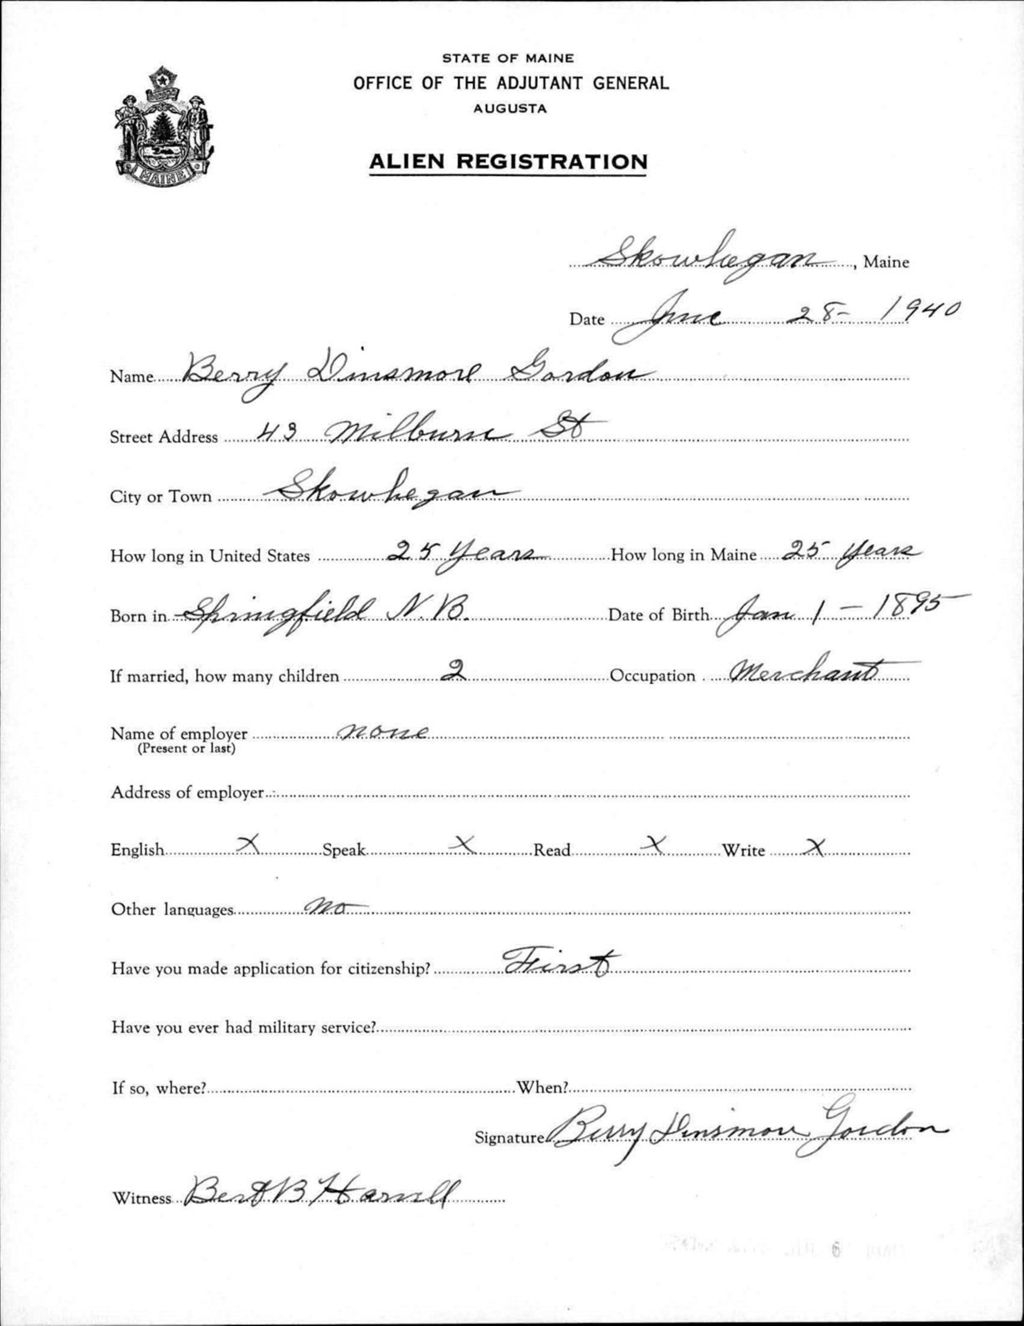 STATE OF MAINE
OFFICE OF THE ADJUTANT GENERAL
AUGUSTA
ALIEN REGISTRATION
MAINE
Skowhegan, Maine
Date June 28 - 1940
Name Berry Dinsmore Gordon
Street Address 43 Milburn St
City or Town Skowhegan
How long in United States 25 Years How long in Maine 25 Years
Born in Springfield N.B. Date of Birth Jan 1 - 1895
If married, how many children 2 Occupation Merchant
Name of employer none
(Present or last)
Address of employer
English X Speak X Read X Write X
Other languages no
Have you made application for citizenship? First
Have you ever had military service?
If so, where? When?
Signature Berry Dinsmore Gordon
Witness Bert B